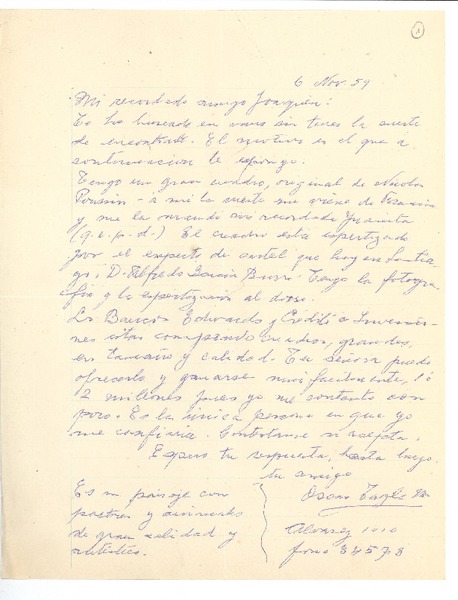 1
6 Nov. 54
Mi recordado amigo Joaquín:
Te he buscado en vano sin tener la suerte
de encontrarte. El motivo es el que a
continuación le expongo.
Tengo un gran cuadro, original de Nicolas
Poussin - a mi la suerte me viene de
y me la mandó mi recordada Juanita
(q.e.p.d.) El cuadro está expertizado
por el experto de cartel que hay en Santia-
go: D. Alfredo García Burr. Tengo la fotogra-
fía y la expertización al dorso.
Los Bancos Edwards y Crédito e Inversio-
nes están comprando cuadros, grandes,
en tamaño y calidad. Tu señora puede
ofrecerlo y ganarse muy facilmente, 1 ó
2 millones pues yo me contento con
poco. Es la única persona en que yo
me confiaría. Contéstame si acepta.
Espero tu respuesta, hasta luego,
tu amigo
Oscar Tagle
Alvarez 1010
fono 84578
Es un paisaje con
pastores y animales
de gran calidad y
artístico.